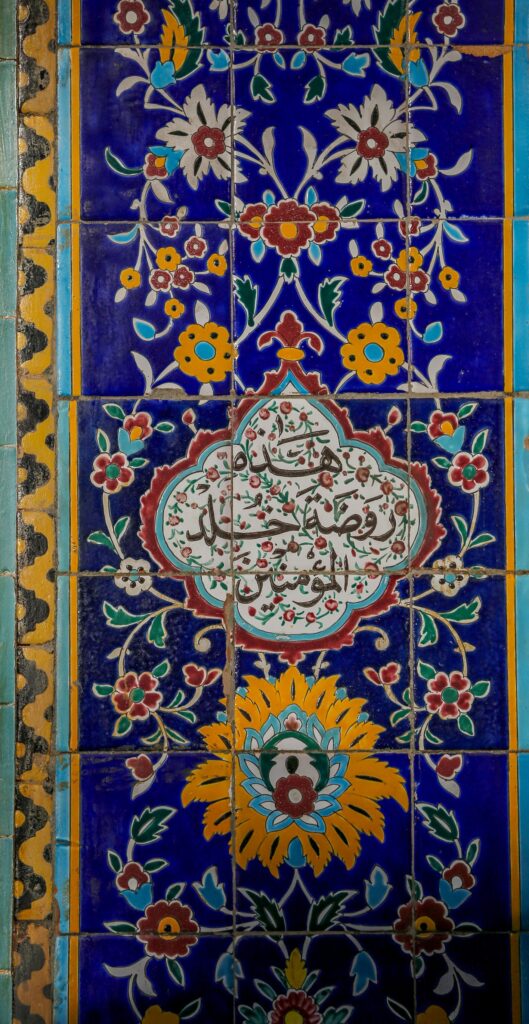 هَذِهِ
رَوَضَةَ خُلْدِ
المُؤْمِنْينَ